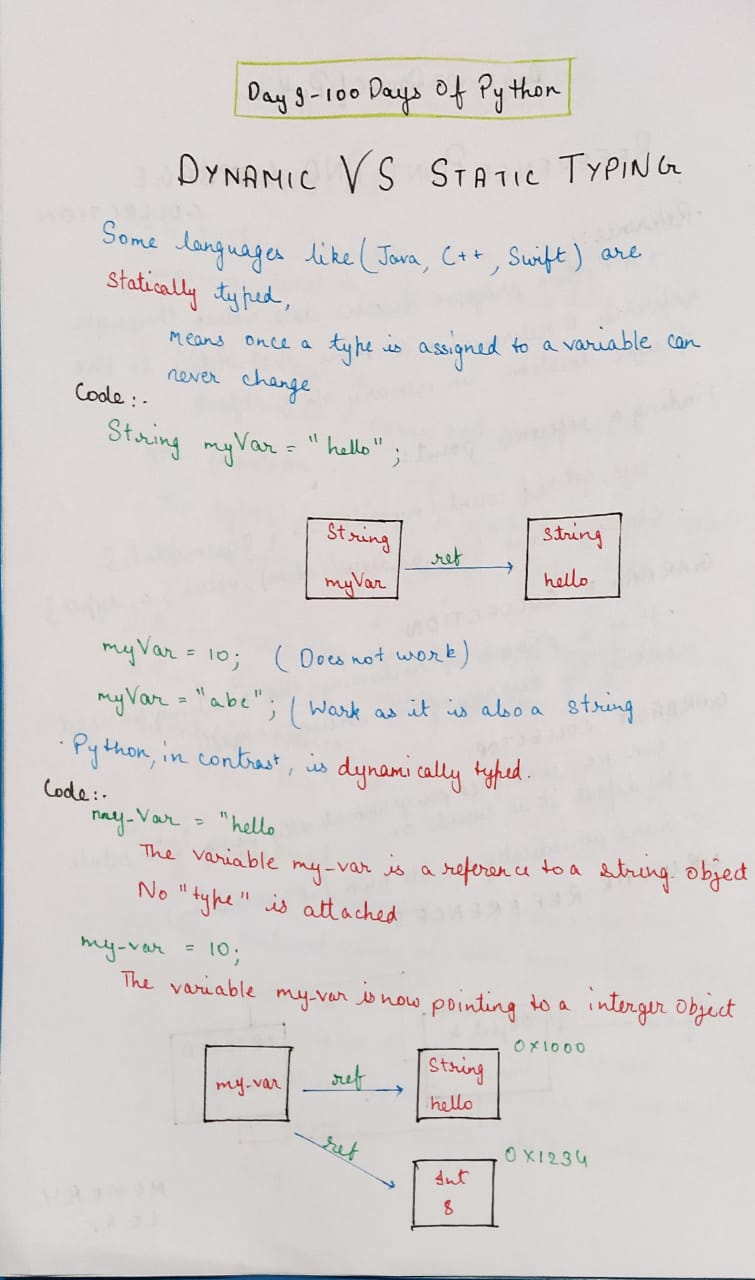 Day 9-100 Days Of Python
DYNAMIC VS STATIC TYPING
Some languages like (Java, C++, Swift) are
Statically typed,
means once a type is assigned to a variable can
never change
Code :-
String myVar = "hello";
String
myVar
ref
String
hello
myVar = 10; ( Does not work)
myVar = "abc"; ( Work as it is also a string
· Python, in contrast, is dynamically typed.
Code :-
my-Var = "hello
The variable my-var is a reference to a string object
No "type" is attached
my-var = 10;
The variable my-var is now pointing to a interger object
my-var
ref
String
hello
0X1000
ref
Int
8
0X1234